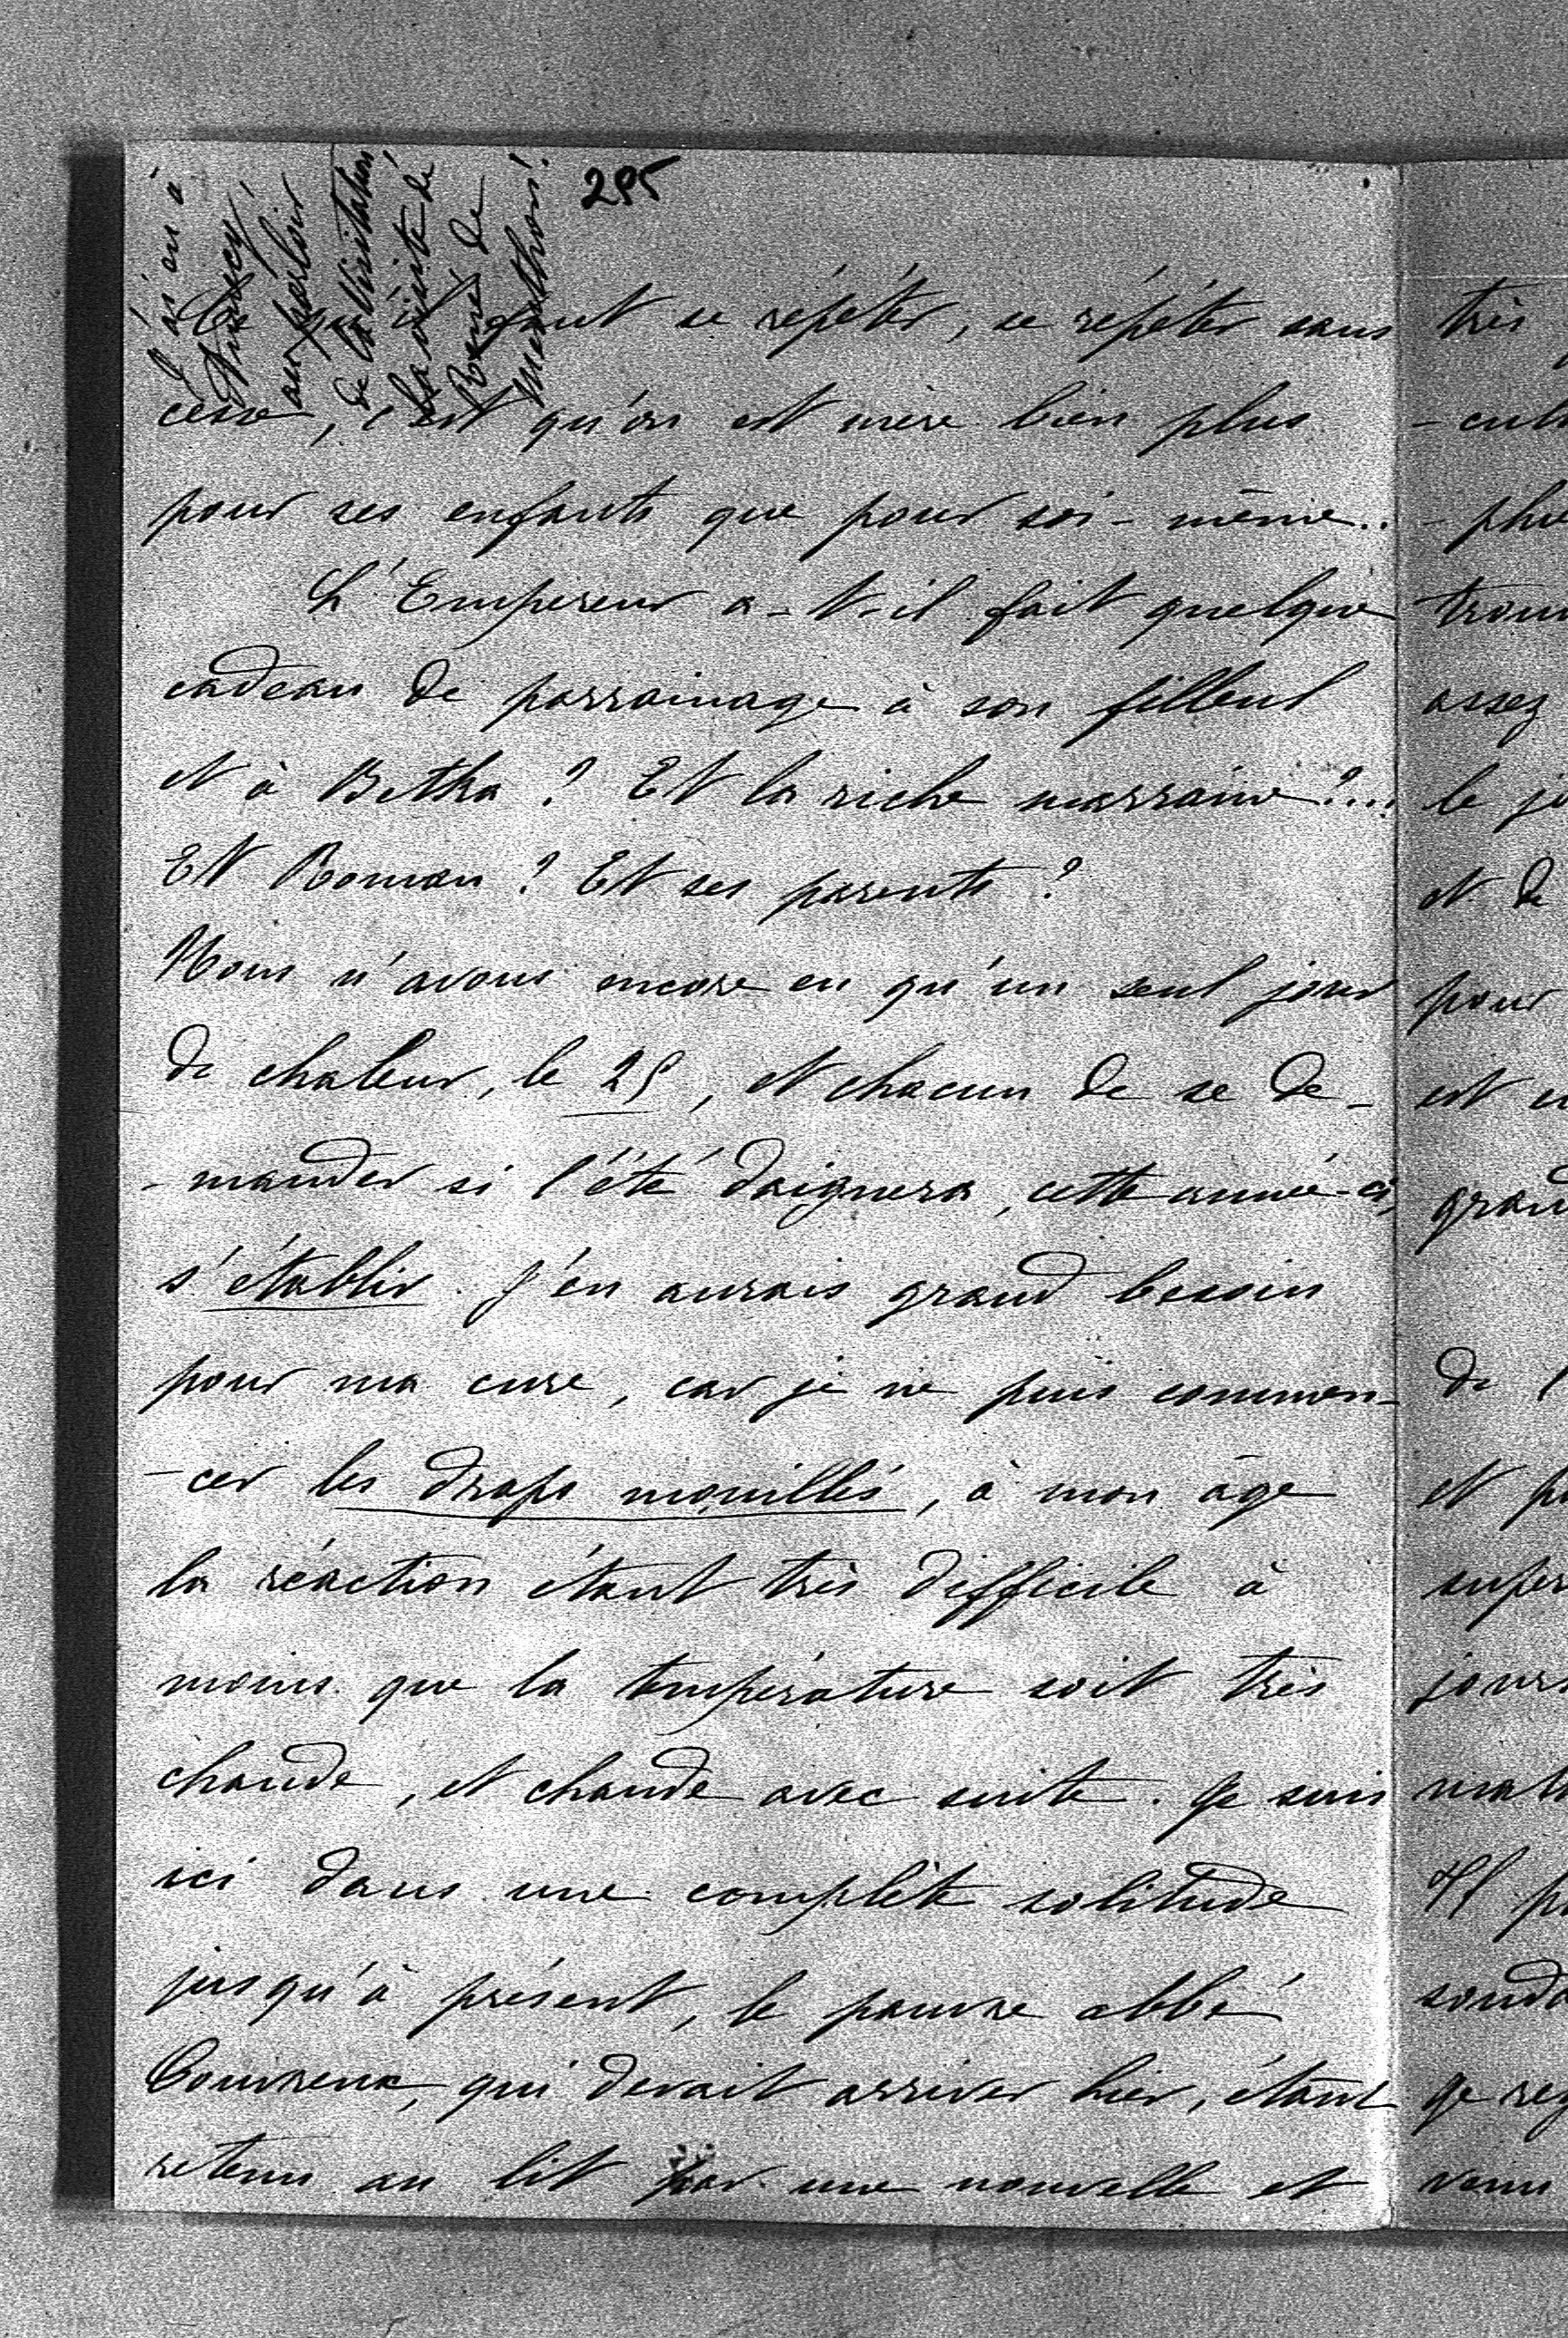 295
J'ai eu à
Annecy,
au parloir
de la Visitation,
la visite de
René de
Menthon!
Ce qu'il faut se répéter, se répéter sans
cesse, c'est qu'on est mère bien plus
pour ses enfants que pour soi-même..
L'Empereur a-t-il fait quelque
cadeau de parrainage à son filleul
et à Betka ? Et la riche marraine ?...
Et Roman ? Et ses parents ?
Nous n'avons encore eu qu'un seul jour
de chaleur, le 25, et chacun de se de-
-mander si l'été daignera, cette année-ci,
s'établir. J'en aurais grand besoin
pour ma cure, car je ne puis commen-
-cer les draps mouillés, à mon âge
la réaction étant très difficile à
moins que la température soit très
chaude, et chaude avec suite. Je suis
ici dans une complète solitude
jusqu'à présent, le pauvre abbé
qui devait arriver hier, étant
retenu au lit par une nouvelle et
très
-cult
-plus
trouv
assez
le jo
et de
pour
est en
grand
de l
et pa
super
jours
mat
Il pa
souda
je reg
venu